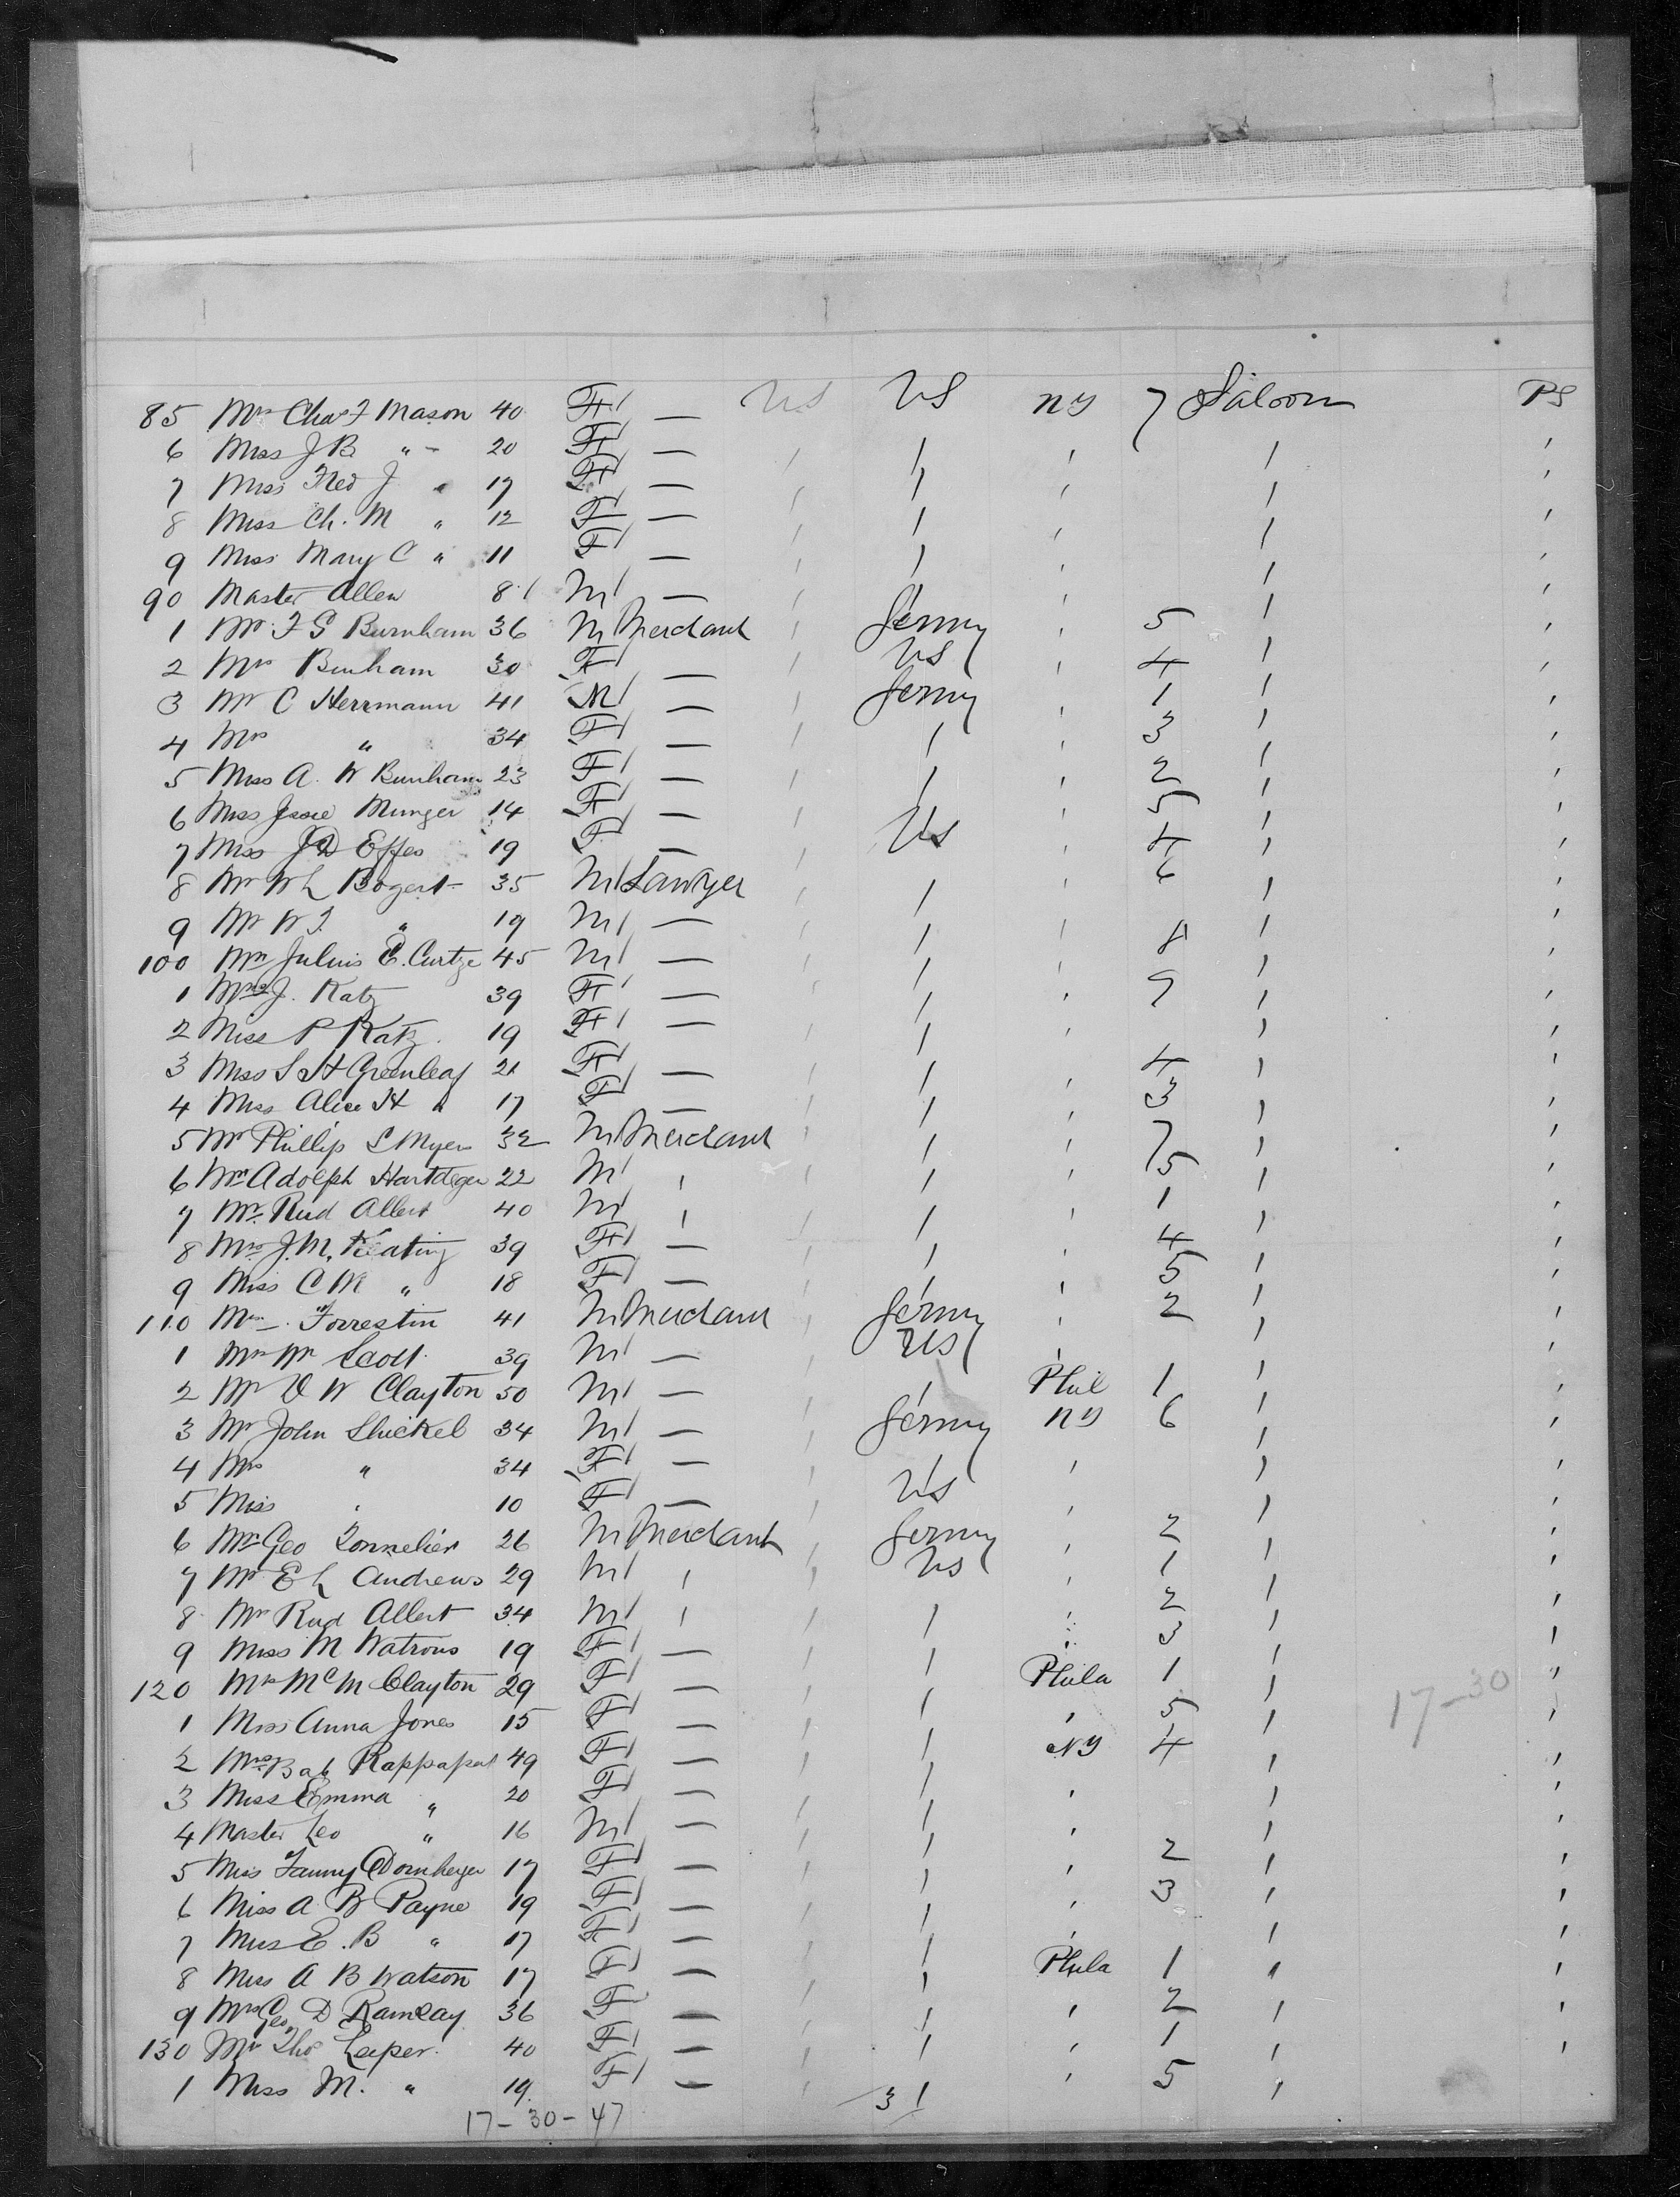 85 Mrs Chas F Mason 40 F — US US NY 7 Saloon PS
6 Miss J B " 20 F — / / / / /
7 Miss Fred J " 17 F — / / / / /
8 Miss Ch. M " 12 F — / / / / /
9 Miss Mary C " 11 F — / / / / /
90 Master Allen 8 M — / / / / /
1 Mr F S Burnham 36 M Merchant / Germy / 5 / /
2 Mrs Burnham 30 F — / US / 4 / /
3 Mr C Herrmann 41 M — / Germy / 1 / /
4 Mrs " 34 F — / / / 3 / /
5 Miss A. W Burnham 23 F — / / / 2 / /
6 Miss Jessie Munger 14 F — / / 5 / /
7 Miss J D Effes 19 F — / US / 4 / /
8 Mr W L Bogert 35 M Lawyer / / / 6 / /
9 Mr W F. " 19 M — / / / / /
100 Mr Julius E. Curtze 45 M — / / / 8 / /
1 Mrs J. Katz 39 F — / / / 9 / /
2 Miss P Katz 19 F — / / / / /
3 Miss S H Greenleaf 21 F — / / / 4 / /
4 Miss Alice H " 17 F — / / / 3 / /
5 Mr Phillip S Myers 32 M Merchant / / / 7 / /
6 Mr Adolph Hartdegen 22 M / / / / 5 / /
7 Mr Rud Allert 40 M / / / / 1 / /
8 Mrs J. M. Keating 39 F — / / / 4 / /
9 Miss C M " 18 F — / / / 5 / /
110 Mr —. Forrestin 41 M Merchant / Germy / 2 / /
1 Mr Wm Scott 39 M — / US / / /
2 Mr D W Clayton 50 M — / / Phil 1 / /
3 Mr John Shickel 34 M — / Germy NY 6 / /
4 Mrs " 34 F — / / / /
5 Miss " 10 F — / US / / /
6 Mr Geo Tonnelier 26 M Merchant / Germy / 2 / /
7 Mr E L Andrews 29 M / / US / 1 / /
8 Mr Rud Allert 34 M / / / / 2 / /
9 Miss M Watrous 19 F — / / / 3 / /
120 Mrs McM Clayton 29 F — / / Phila 1 / /
17-30
1 Miss Anna Jones 15 F — / / / 5 / /
2 Mrs Bab Rappaport 49 F — / / NY 4 / /
3 Miss Emma " 20 F — / / / / /
4 Master Leo " 16 M — / / / / /
5 Miss Fanny Dornheyer 17 F — / / / 2 / /
6 Miss A B Payne 19 F — / / / 3 / /
7 Miss E. B " 17 F — / / / / /
8 Miss A B Watson 17 F — / / Phila 1 / /
9 Mrs Geo D Ramsay 36 F — / / / 2 / /
130 Mr Thos Leiper 40 F — / / / 1 / /
1 Miss M. " 19 F — / / / 5 /
31
17-30-47